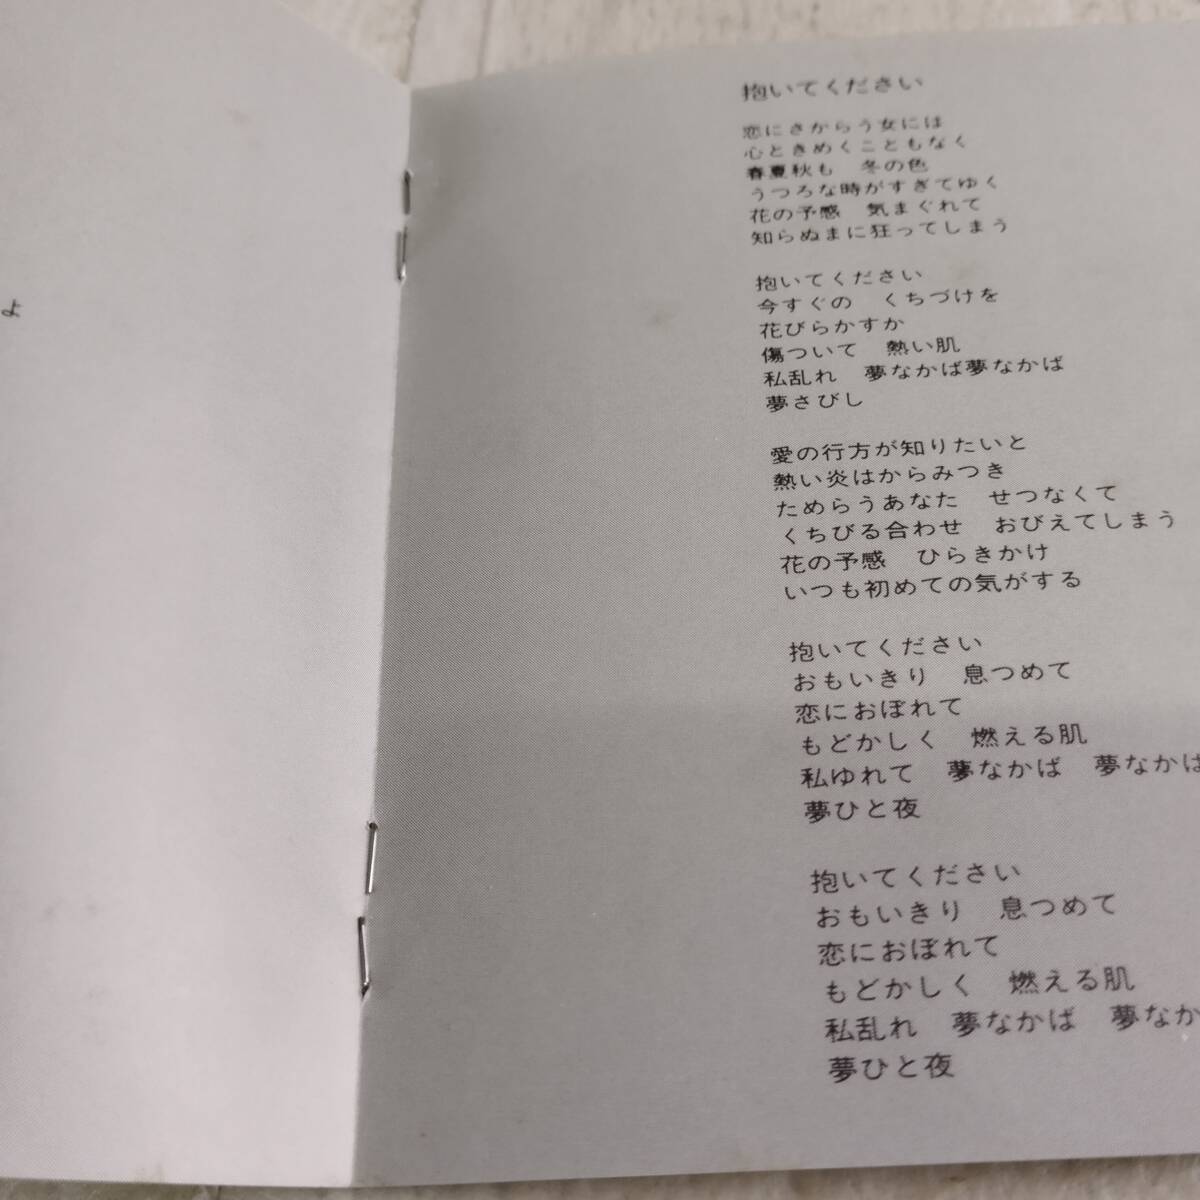 よ
抱いてください
恋にさからう女には
心ときめくこともなく
春夏秋も　冬の色
うつろな時がすぎてゆく
花の予感　気まぐれて
知らぬまに狂ってしまう
抱いてください
今すぐの　くちづけを
花びらかすか
傷ついて　熱い肌
私乱れ　夢なかば夢なかば
夢さびし
愛の行方が知りたいと
熱い炎はからみつき
ためらうあなた　せつなくて
くちびる合わせ　おびえてしまう
花の予感　ひらきかけ
いつも初めての気がする
抱いてください
おもいきり　息つめて
恋におぼれて
もどかしく　燃える肌
私ゆれて　夢なかば　夢なかば
夢ひと夜
抱いてください
おもいきり　息つめて
恋におぼれて
もどかしく　燃える肌
私乱れ　夢なかば　夢なか
夢ひと夜